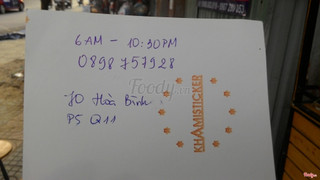 6AM - 10:30PM
0898757928
70 Hòa Bình
P5 Q11
KHAMISTICKER
Foody